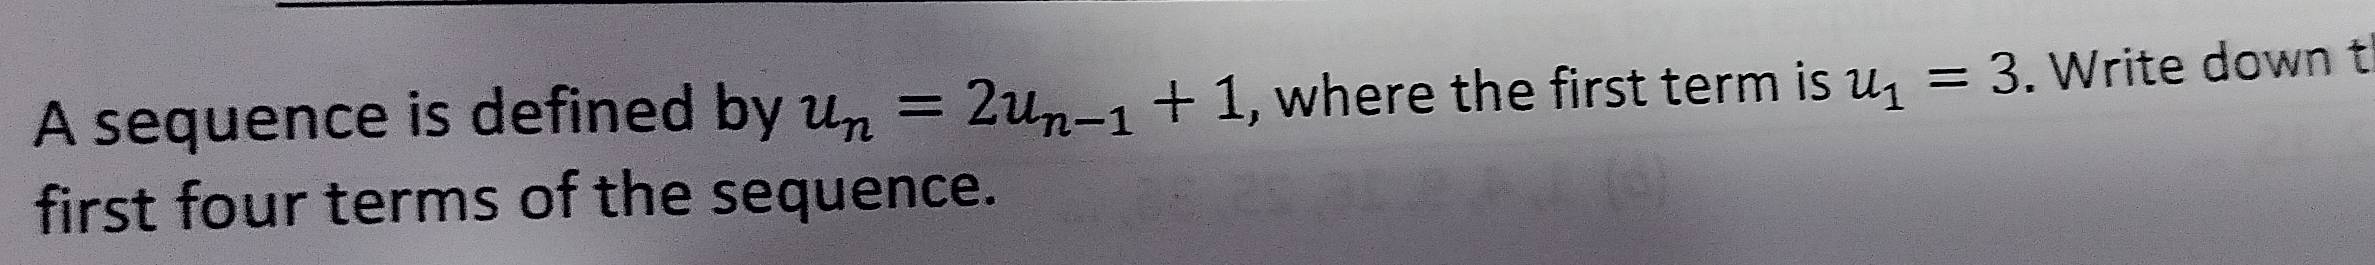 A sequence is defined by uₙ = 2uₙ₋₁ + 1, where the first term is u₁ = 3. Write down
first four terms of the sequence.